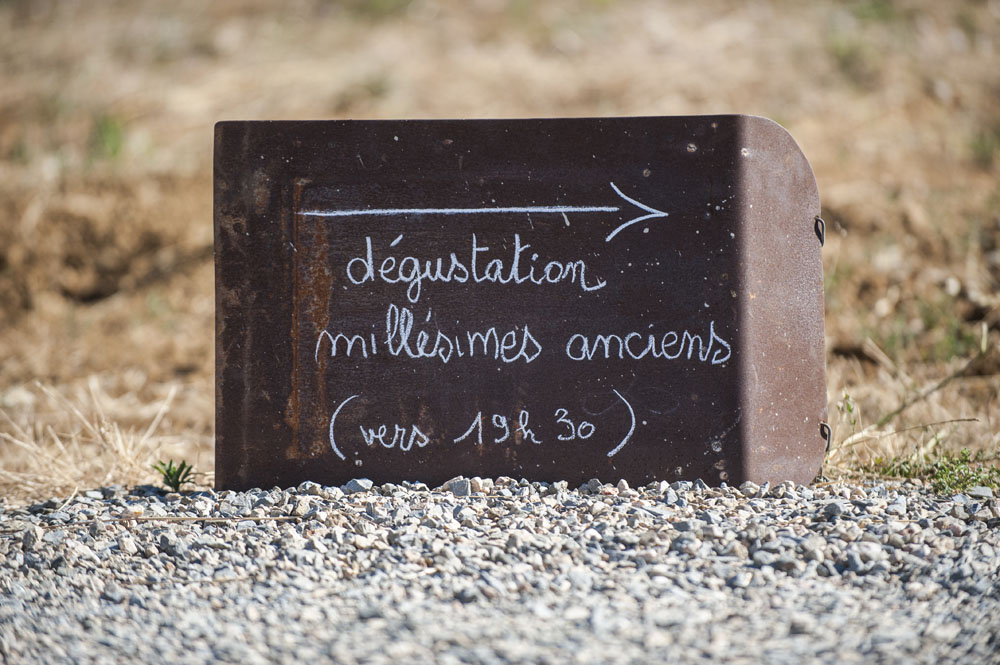 dégustation
millésimes anciens
(vers 19h30)